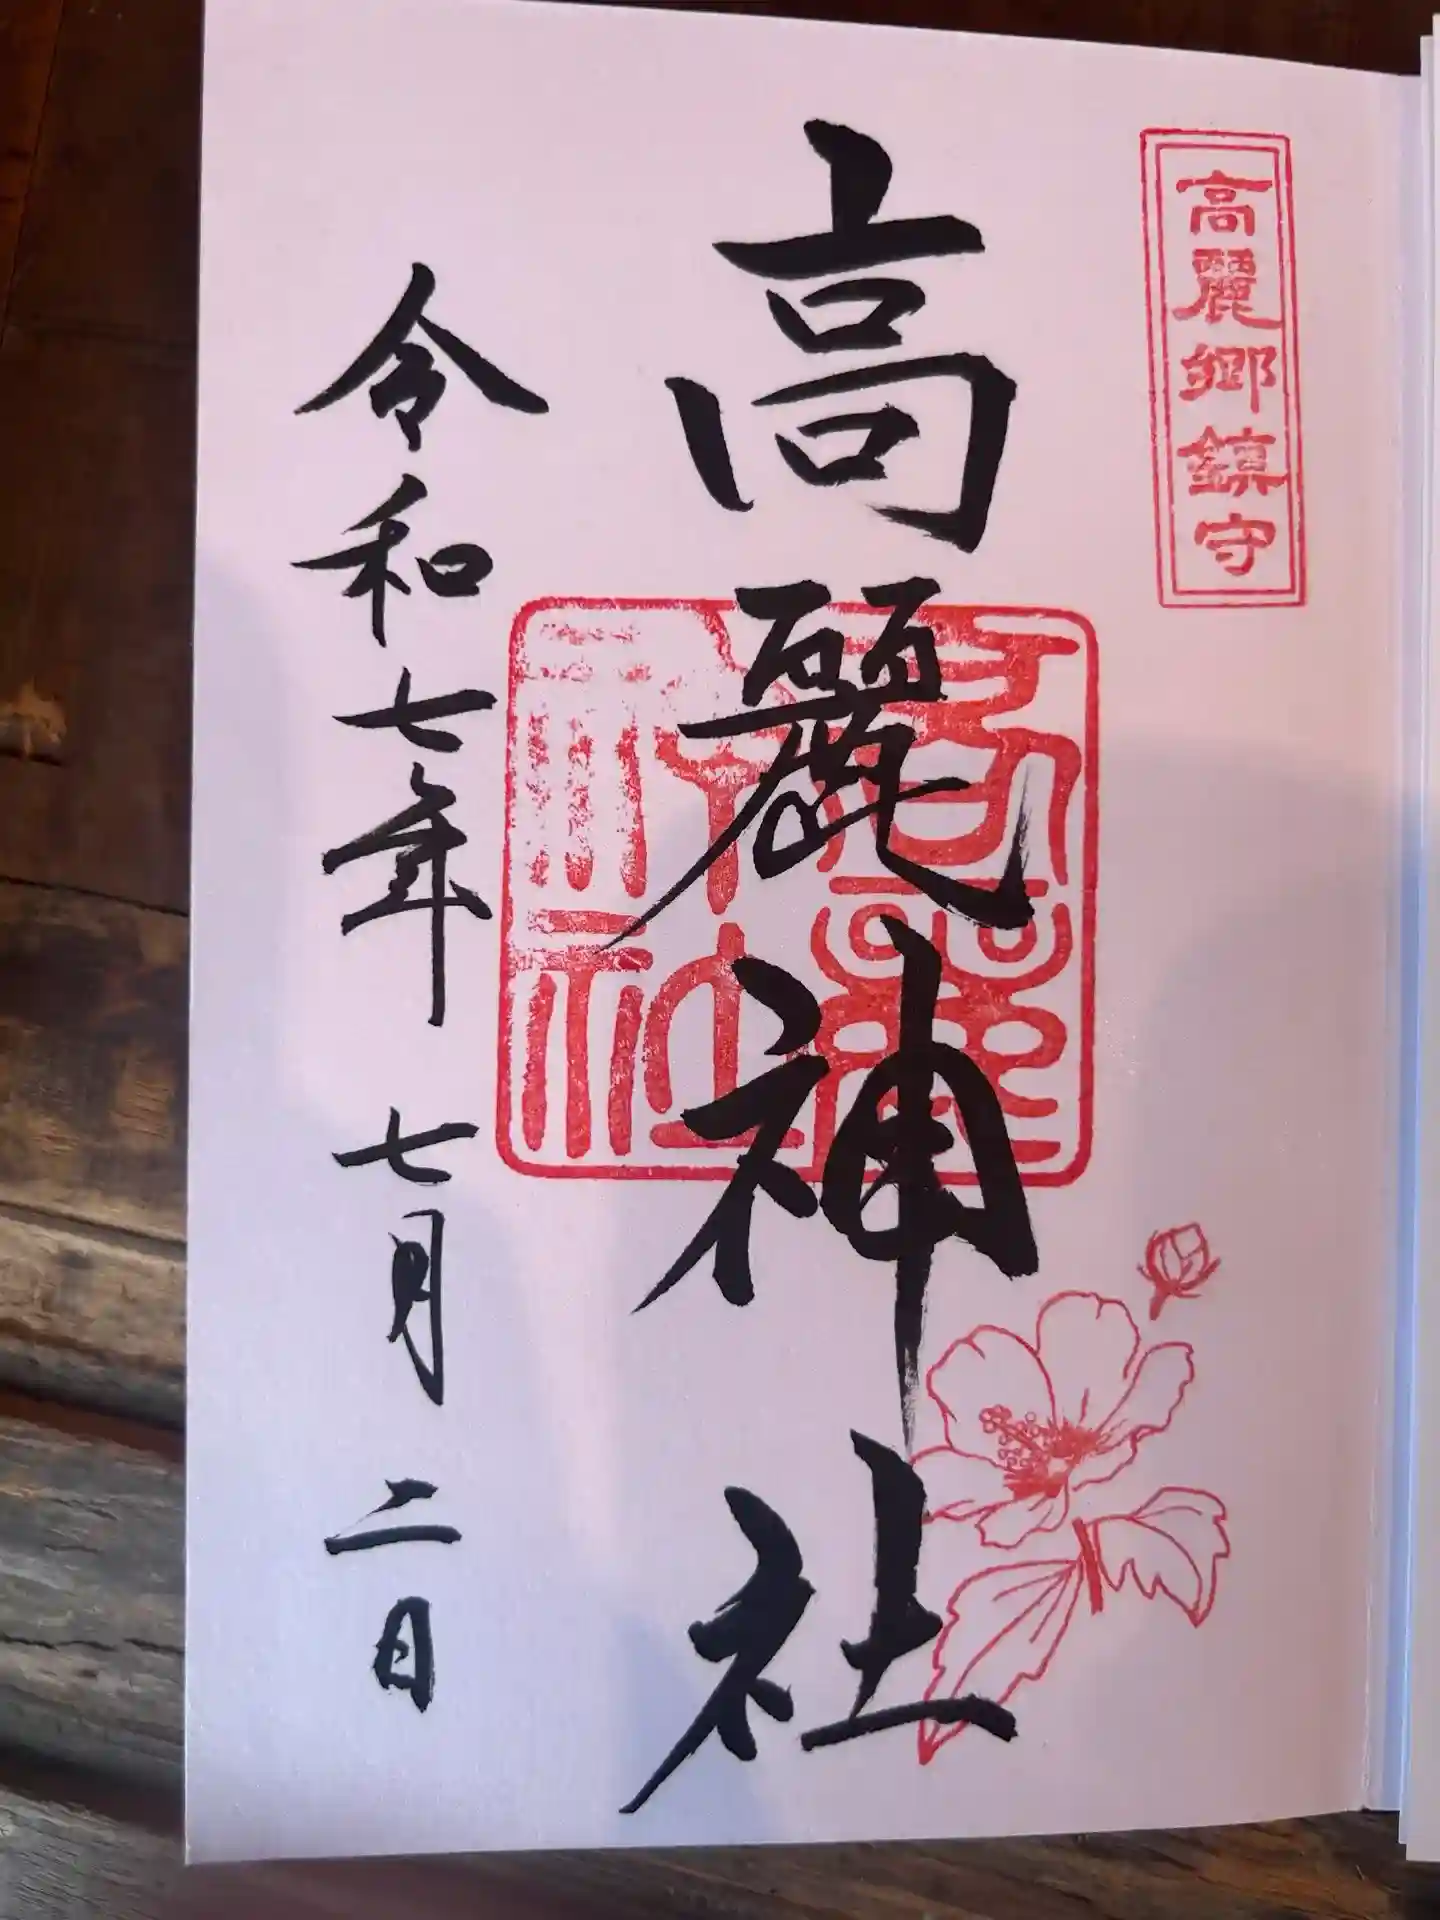 高麗郷鎮守
高麗神社
高麗神社
令和七年 七月 二日